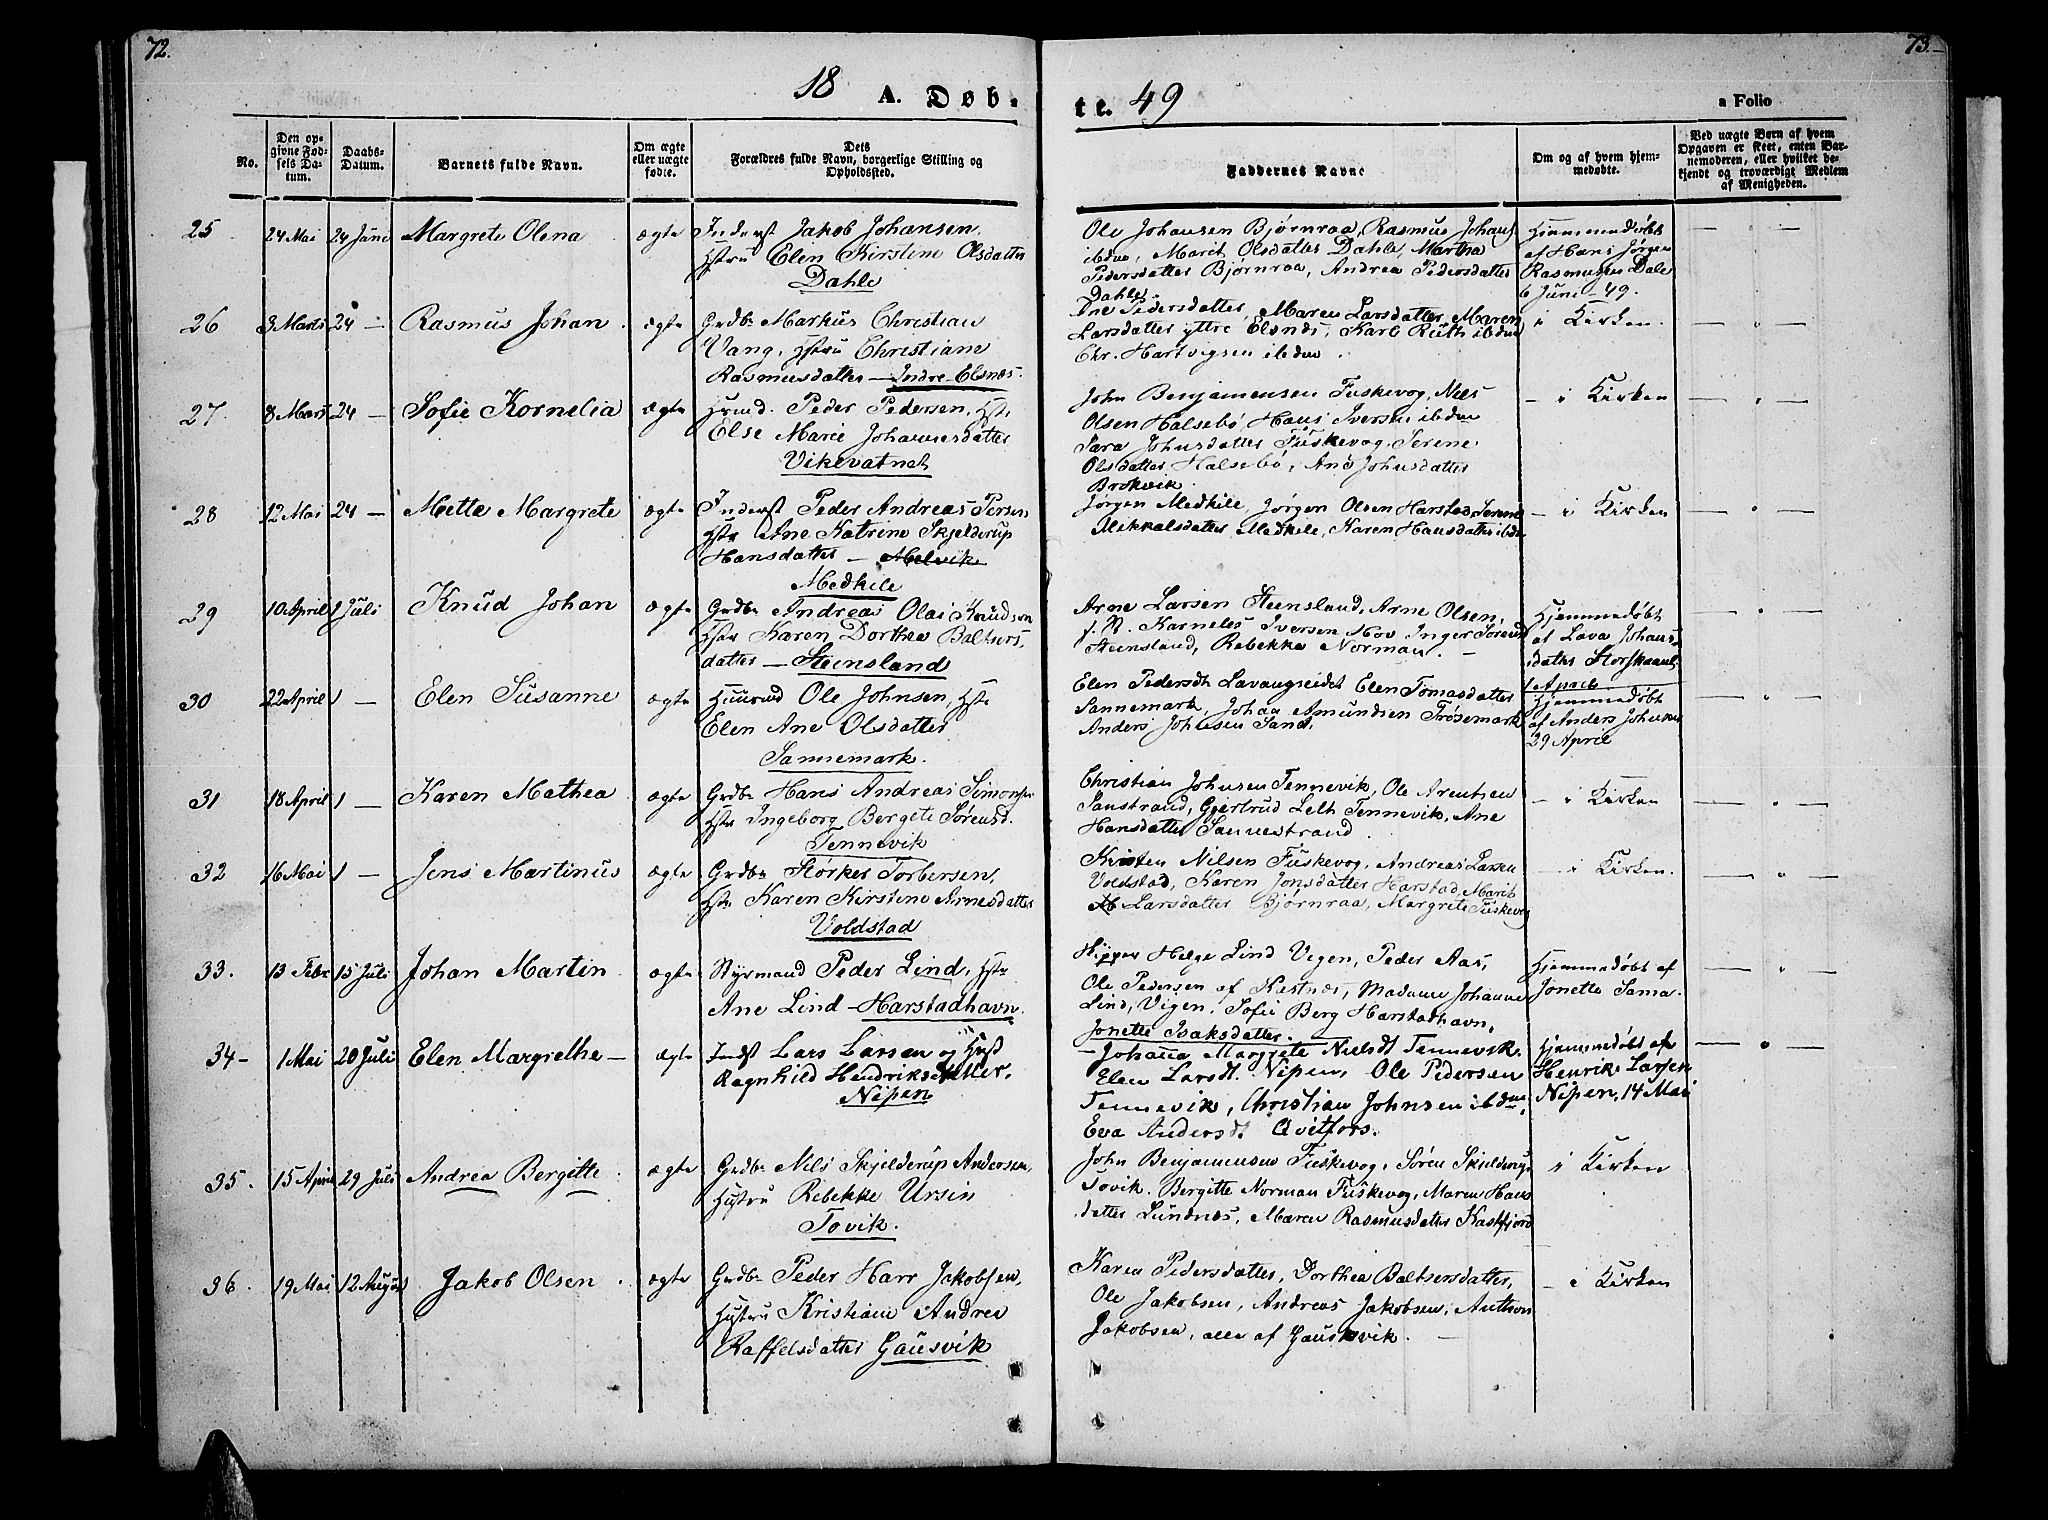 72.
73.
18 A. Døb-
te. 49
a Folio
No.
Den op-
givne Fød-
sels Da-
tum.
Daabs-
Datum.
Barnets fulde Navn.
Om ægte
eller uægte
fødte.
Dets
Forældres fulde Navn, borgerlige Stilling og
Opholdssted.
Faddernes Navne
Om og af hvem hjem-
medøbte.
Ved uægte Børn af hvem
Opgaven er skeet, enten Bar-
nemoderen, eller hvilket be-
kjendt og troværdigt Medlem
af Menigheden.
25 24 Mai 24 Juni Margrete Olena ægte Inderst Jakob Johansen.
Hstru Elen Kirstine Olsdatter
Dahle
Ole Johansen Bjørnraa, Rasmus Johans
ibdm, Marit Olsdatter Dahle, Martha
Pedersdatter Bjørnraa, Andrea Pedersdatter
Dahle
Hjemmedøbt
af Hans Jørgen
Rasmusen Dale
6 Juni 49.
26 3 Marts 24 — Rasmus Johan ægte Grdbr Markus Christian
Vang, Hstru Christiane
Rasmusdatter — Indre-Elsnæs.
Ane Pedersdatter, Maren Larsdatter, Maren
Larsdatter ytre Elsnæs, Karl Ruth ibdm
Chr. Hartvigsen ibdm.
i Kirken.
27. 8 Mars 24 — Sofie Kornelia ægte Husmd. Peder Pedersen, Hst.
Else Marie Johannesdatter
Vikevatnet
John Benjamensen Fuskevog, Niels
Olsen Halsebø, Hans Iversen ibdm
Sara Johnsdatter Fuskevog, Serene
Olsdatter Halsebø, Ane Johnsdatter
Brokvik.
— i Kirken
28 12 Mai 24 — Mette Margrete ægte Inderst Peder Andreas Persen
Hstr Ane Katrine Skjelderup
Hansdatter — Melvik
Medkile
Jørgen Medkile, Jørgen Olsen Harstad, Serene
Mekkalsdatter Medkile, Karen Hansdatter ibdm
— i Kirken
29 10 April 1 Juli Knud Johan ægte Grdbr Andreas Olai Knudsen
Hstr Karen Dorthea Baltsers-
datter — Steensland
Arne Larsen Steensland, Arne Olsen,
f. N. Karneles Iversen Mov Inger Sørensd
Steensland, Rebekka Norman. —
Hjemmedøbt
af Lava Johans-
datter Storskaanl.
1 April
30 22 April 1 — Elen Susanne ægte Husmd Ole Johnsen, Hst.
Elen Ane Olsdatter
Sannemark.
Elen Pedersdt Lavangseidet Elen Tomasdatter
Sannemark, Johan Amundsen Trøsemark
Anders Johnsen Sand.
Hjemmedøbt
af Anders Johnsen
29 April
31 18 April 1 — Karen Mathea ægte Grdbr Hans Andreas Simonsen
Hstr Ingeborg Bergete Sørensd.
Tennevik
Christian Johnsen Tennevik, Ole Arentsen
Sanstrand, Gjertrud Leth Tennevik, Ane
Hansdatter Sannestrand.
— i Kirken
32 16 Mai 1 — Jens Martinus ægte Grdbr Størker Torbersen,
Hstr Karen Kirstine Arnesdatter
Voldstad
Kristen Nilsen Fuskevog, Andreas Larsen
Voldstad, Karen Jonsdatter Harstad, Marit
Larsdatter Bjørnraa, Margrete Fuskevog
— i Kirken.
33. 13 Febr 15 Juli Johan Martin ægte Styrmand Peder Lind, Hstr
Ane Lind — Harstadhavn.
Skipper Helge Lind Vegen, Peder Aas,
Ole Pedersen af Kastnæs, Madame Johanne
Lind, Vigen, Sofie Berg Harstadhavn,
Jonette Isaksdatter. —
Hjemmedøbt af
Jonette Sama.
34 — 1 Mai 20 Juli Elen Margrethe — ægte Indst Lars Larsen og Hust
Ragnhild Hendriksdatter,
Nipen
— Johana Margrete Nielsdt Tennevik.
Elen Larsdt. Nipen, Ole Pedersen
Tennevik, Christian Johnsen ibdm,
Eva Andersdt Qvitfors.
Hjemmedøbt af
Henrik Larsen
Nipen, 14 Mai
35. 15 April 29 Juli Andrea Bergitte ægte Grdbr Nils Skjelderup Andersen,
Hustru Rebekke Ursin
Tovik.
John Benjamensen Fuskevog, Søren Skjelderup
Tovik. Bergitte Norman Fuskevog, Maren Hans
datter Lundnæs, Maren Rasmusdatter Kastfjord
i Kirken
36. 19 Mai 12 August Jakob Olsen ægte Grdbr Peder Harr Jakobsen,
Hustru Kristiane Andrea
Raffelsdatter Gausvik
Karen Pedersdatter, Dorthea Baltsersdatter,
Ole Jakobsen, Andreas Jakobsen, Anthon
Jakobsen, alle af Gauskvik. —
— i Kirken